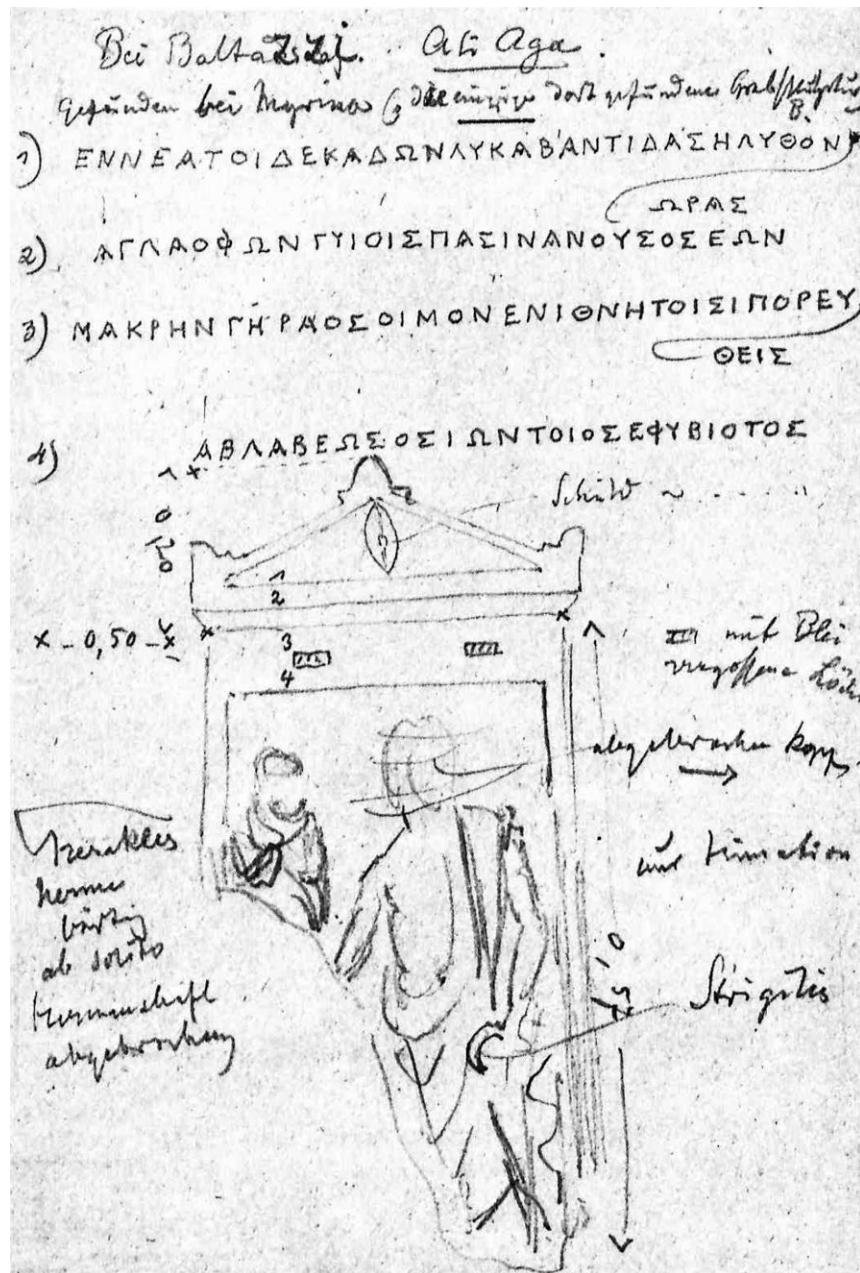 Bei Baltazzi. Ali Aga.
gefunden bei Myrina (die einzige dort gefundene
1) ΕΝΝΕΑΤΟΙΔΕΚΑΔΩΝΛΥΚΑΒΑΝΤΙΔΑΣΗΛΥΘΟΝ
ΩΡΑΣ
2) ΑΓΛΑΟΦΩΝΓΥΙΟΙΣΠΑΣΙΝΑΝΟΥΣΟΣΕΩΝ
3) ΜΑΚΡΗΝΓΗΡΑΟΣΟΙΜΟΝΕΝΙΘΝΗΤΟΙΣΙΠΟΡΕΥ
ΘΕΙΣ
4) ΑΒΛΑΒΕΩΣΟΣΙΩΝΤΟΙΟΣΕΦΥΒΙΟΤΟΣ
Schild
1
2
x - 0,50 - x
3
4
mit Blei
vergossene Löcher
abgebrochen Kopf
mit Himation
Herakles
herme
bärtig
ab
Hermenschaft
abgebrochen
Strigilis